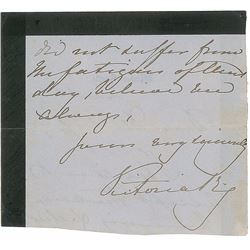 did not suffer from
the fatigues of the
day, believe me
always,
yours very sincerely
Victoria Rg